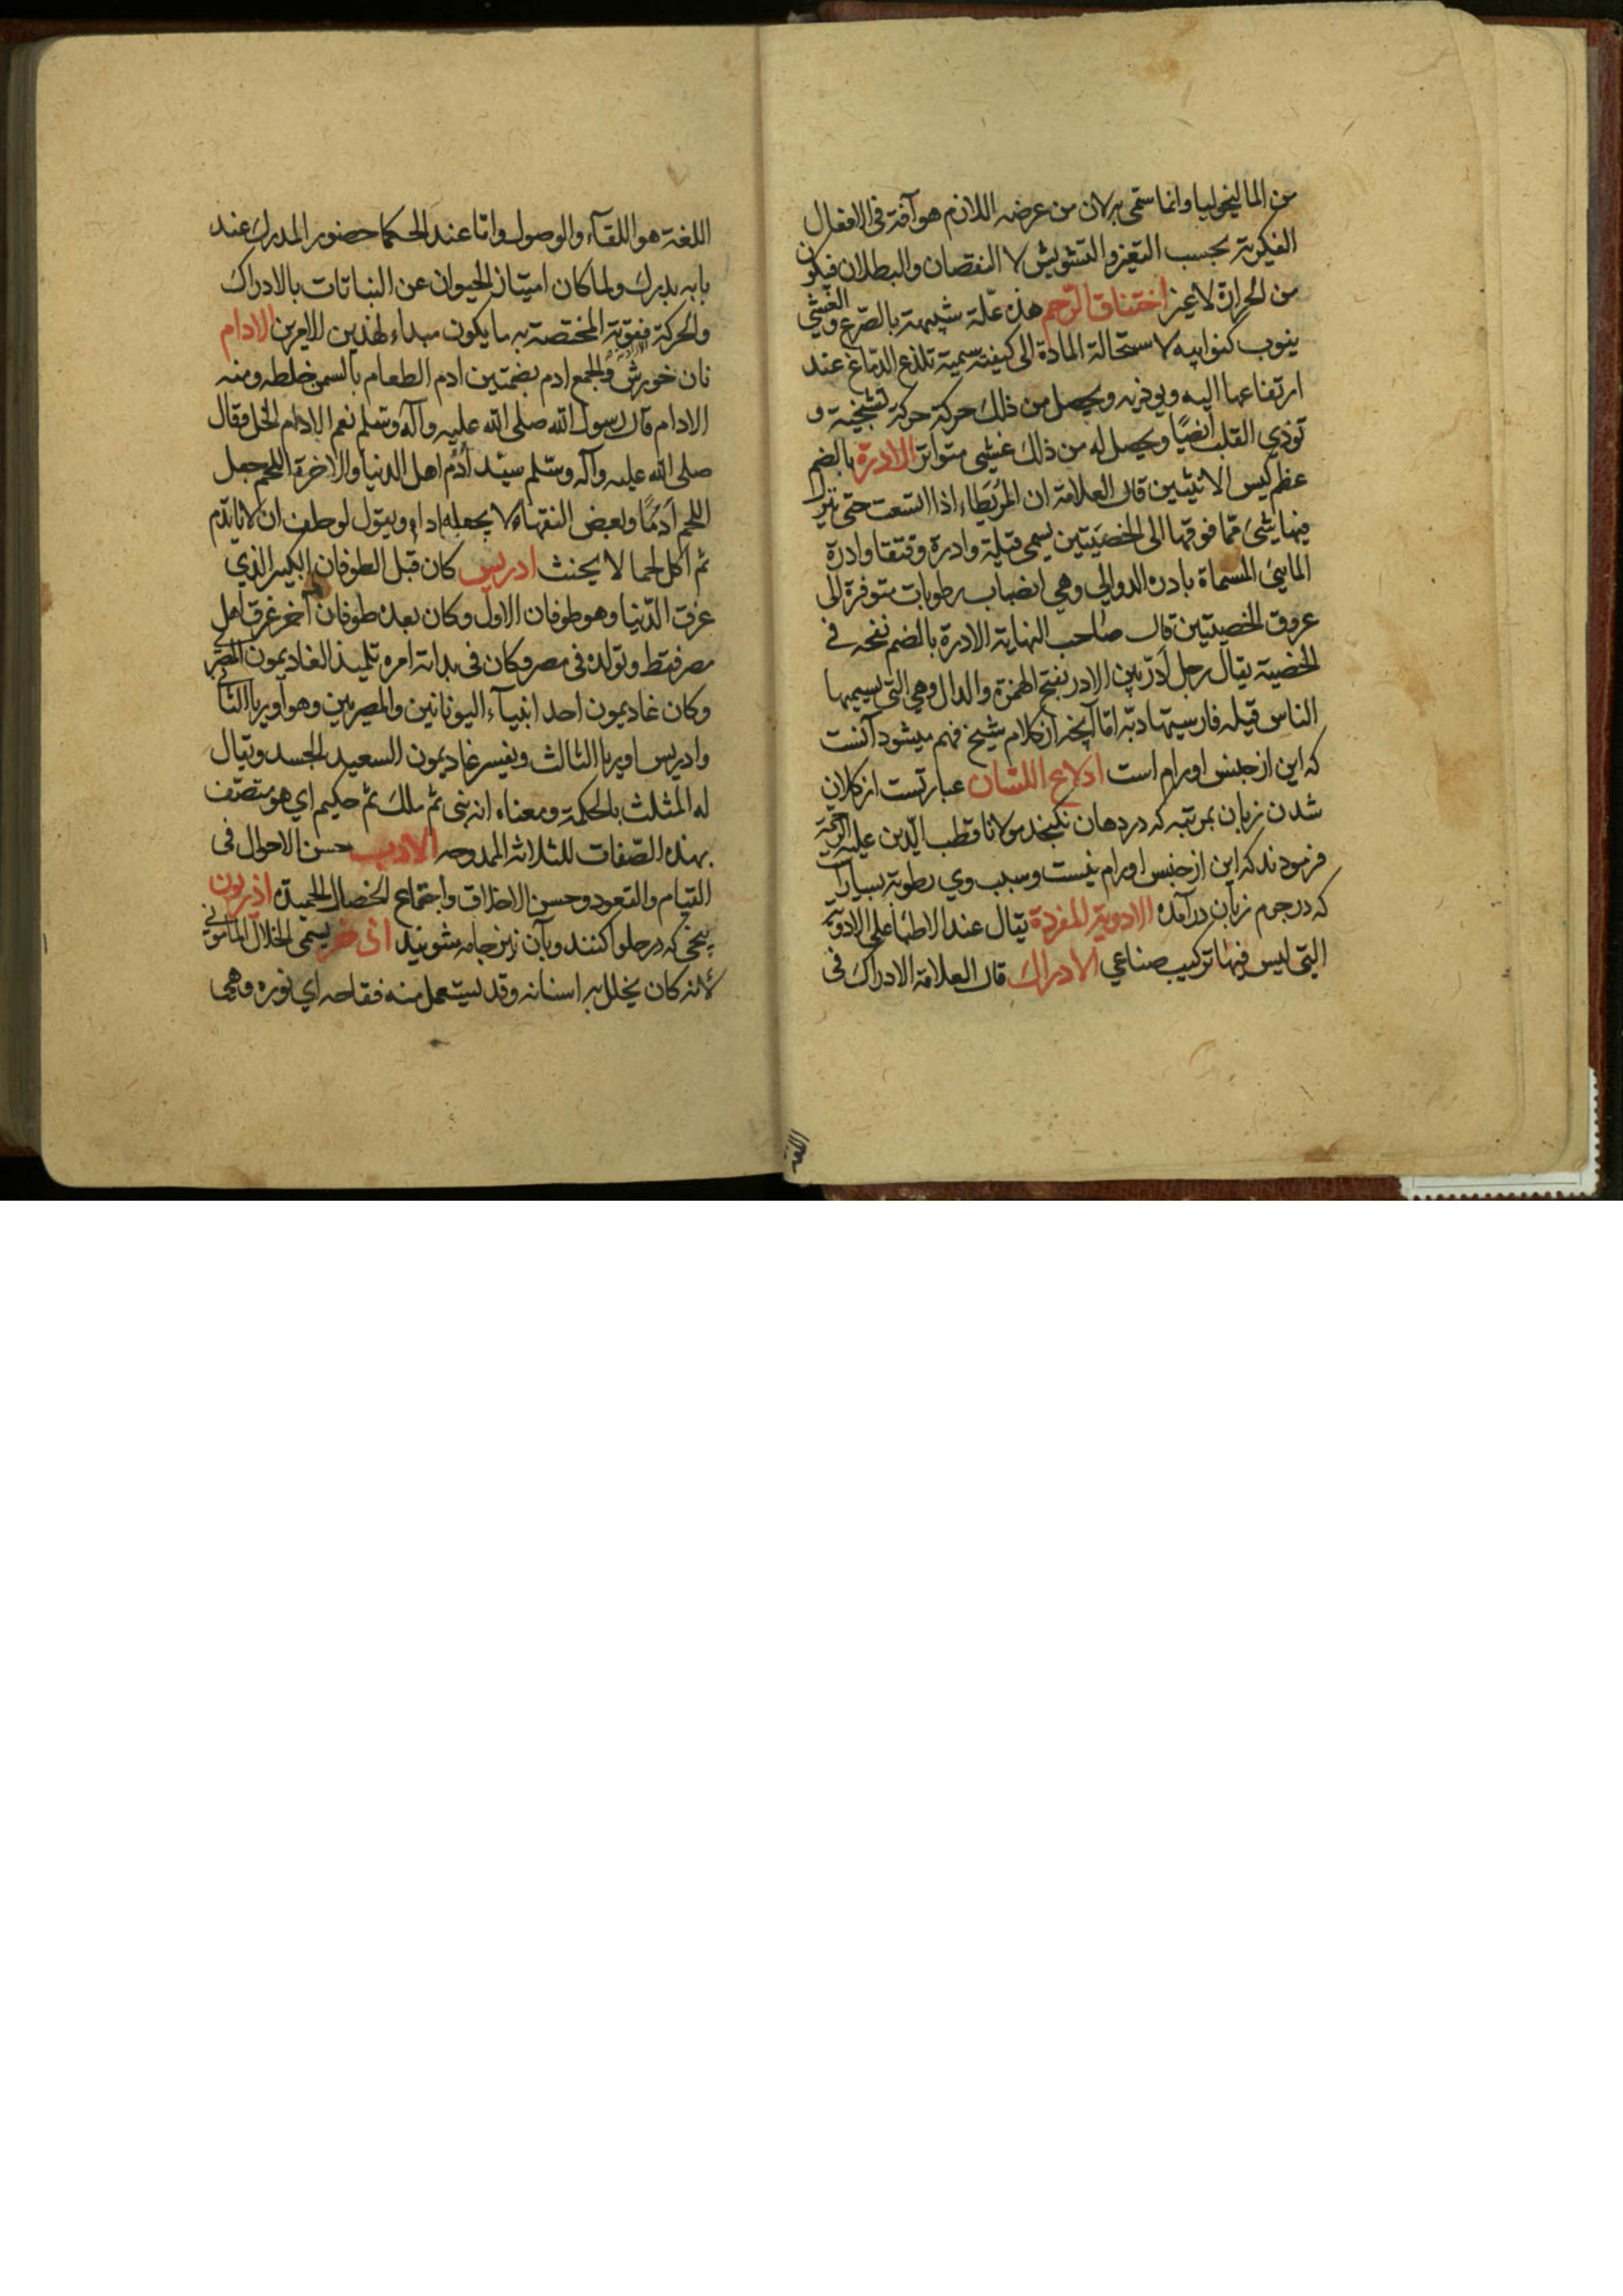 من الماليخوليا وانما سمى به لان من عرضه اللازم هو آفة فى الافعال
الفكرية بحسب التغير والتشويش لا النقصان والبطلان فيكون
من الحرارة لا غير اختناق الرحم هذه علّة شبيهة بالصّرع والغشي
ينوب كنوايبه لاستحالة المادة الى كيفية سمية تلذع الدماغ عند
ارتفاعها اليه ويوذيه ويحصل من ذلك حركة حركة تشنجية و
توذي القلب ايضًا ويحصل له من ذلك غشى متواتر الادرة بالضم
عظم كيس الانثيين قال العلامة ان المُرَيطاء اذا اتسعت حتى نزل
فيها شئ ممّا فوقها الى الخصيَتين يسمى قيلة وادرة وفتقا وادرة
المايئ المسماة بادرة الدوالي وهي انصباب رطوبات متوفرة الى
عروق الخصيتين قال صاحب النهاية الادرة بالضم نفخه في
الخصية يقال رجل آدر بين الادر بفتح الهمزة والدال وهي التى يسميها
الناس قيله فارسيتها دبّه امّا آنچه از كلام شيخ فهم ميشود آنست
كه اين از جنس اورام است ادلاع اللسان عبارتست از كلان
شدن زبان بمرتبه كه در دهان نگنجد مولانا قطب الدين عليه الرحمة
فرمودند كه اين از جنس اورام نيست وسبب وي رطوبة بسيار است
كه در جرم زبان درآمده الادوية المفردة يقال عند الاطبا على الادوية
التى ليس فيها تركيب صناعي الادراك قال العلامة الادراك فى
اللغة هو اللقآء والوصول واما عند الحكما حضور المدرك عند
ما به يدرك ولما كان امتياز الحيوان عن النباتات بالادراك
والحركة فقوته المختصة به ما يكون مبداء لهذين الامرين الادام
نان خورش والجمع ادم بضمتين ادم الطعام بالسمن خلطه ومنه
الادام قال رسول الله صلى الله عليه وآله وسلم نعم الادام الخل وقال
صلى الله عليه وآله وسلم سيّد أدُم اهل الدنيا والاخرة اللحم جعل
اللحم أدمًا وبعض الفقهاء لا يجعله اداما ويقول لو حلف ان لا يأتدم
ثم اكل لحما لا يحنث ادريس كان قبل الطوفان الكبير الذي
غرق الدّنيا وهو طوفان الاول وكان بعده طوفان آخر غرق اهل
مصر فقط وتولده فى مصر وكان فى بداية امره تلميذ الغاديمون المصرى
وكان غاديمون احد انبيآء اليونانيين والمصريين وهو اوريا الثانى
وادريس اوريا الثالث وتفسير غاديمون السعيد الجسد ويقال
له المثلث بالحكمة ومعناه انه نبى ثم ملك ثم حكيم اي هو متصف
بهذه الصّفات الثلاثه الممدوحه الادب حسن الاحوال فى
القيام والقعود وحسن الاخلاق واجتماع الخصال الحميدة اذريون
بيخى كه در حلوا كنند وبآن نيز جامه شويند اذخر يسمى الخلال المامونى
لانه كان يخلل به اسنانه وقد يستعمل منه فقاحه اي نوره وهي